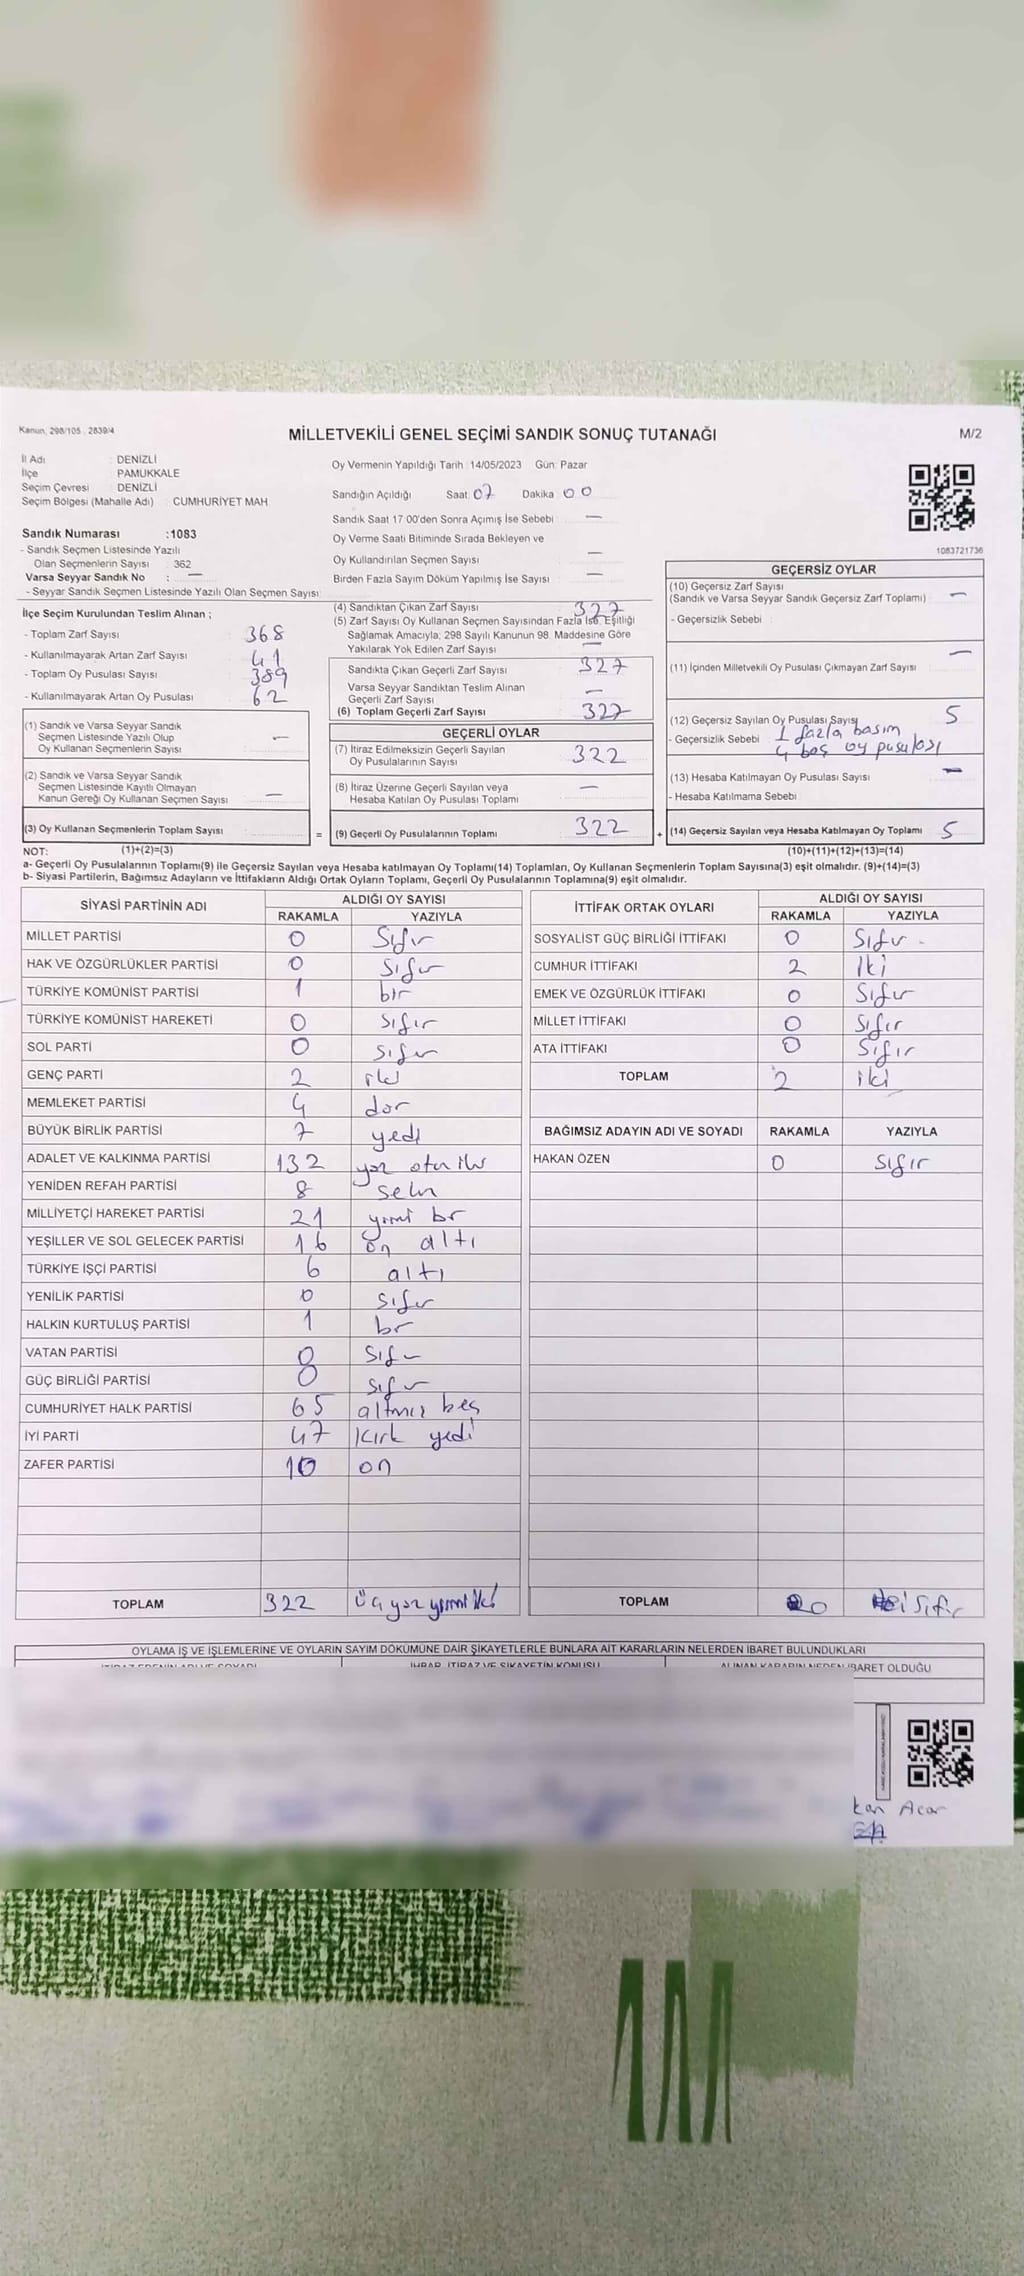 Kanun, 298/105 , 2839/4
MİLLETVEKİLİ GENEL SEÇİMİ SANDIK SONUÇ TUTANAĞI
M/2
İl Adı : DENİZLİ
İlçe PAMUKKALE
Seçim Çevresi : DENİZLİ
Seçim Bölgesi (Mahalle Adı) CUMHURİYET MAH
Sandık Numarası :1083
- Sandık Seçmen Listesinde Yazılı
Olan Seçmenlerin Sayısı : 362
Varsa Seyyar Sandık No : —
- Seyyar Sandık Seçmen Listesinde Yazılı Olan Seçmen Sayısı:
Oy Vermenin Yapıldığı Tarih :14/05/2023 Gün: Pazar
Sandığın Açıldığı Saat: 07 Dakika 00
Sandık Saat 17 00'den Sonra Açımış İse Sebebi —
Oy Verme Saati Bitiminde Sırada Bekleyen ve
Oy Kullandırılan Seçmen Sayısı —
Birden Fazla Sayım Döküm Yapılmış İse Sayısı —
1083721736
İlçe Seçim Kurulundan Teslim Alınan ;
- Toplam Zarf Sayısı 368
- Kullanılmayarak Artan Zarf Sayısı 41
- Toplam Oy Pusulası Sayısı 389
- Kullanılmayarak Artan Oy Pusulası 62
(1) Sandık ve Varsa Seyyar Sandık
Seçmen Listesinde Yazılı Olup
Oy Kullanan Seçmenlerin Sayısı —
(2) Sandık ve Varsa Seyyar Sandık
Seçmen Listesinde Kayıtlı Olmayan
Kanun Gereği Oy Kullanan Seçmen Sayısı —
(3) Oy Kullanan Seçmenlerin Toplam Sayısı
(4) Sandıktan Çıkan Zarf Sayısı 327
(5) Zarf Sayısı Oy Kullanan Seçmen Sayısından Fazla İse, Eşitliği
Sağlamak Amacıyla, 298 Sayılı Kanunun 98. Maddesine Göre
Yakılarak Yok Edilen Zarf Sayısı —
Sandıkta Çıkan Geçerli Zarf Sayısı 327
Varsa Seyyar Sandıktan Teslim Alınan
Geçerli Zarf Sayısı —
(6) Toplam Geçerli Zarf Sayısı 327
GEÇERLİ OYLAR
(7) İtiraz Edilmeksizin Geçerli Sayılan
Oy Pusulalarının Sayısı 322
(8) İtiraz Üzerine Geçerli Sayılan veya
Hesaba Katılan Oy Pusulası Toplamı —
= (9) Geçerli Oy Pusulalarının Toplamı 322
GEÇERSİZ OYLAR
(10) Geçersiz Zarf Sayısı
(Sandık ve Varsa Seyyar Sandık Geçersiz Zarf Toplamı) —
- Geçersizlik Sebebi :
(11) İçinden Milletvekili Oy Pusulası Çıkmayan Zarf Sayısı —
(12) Geçersiz Sayılan Oy Pusulası Sayısı 5
- Geçersizlik Sebebi 1 fazla basım
4 boş oy pusulası
(13) Hesaba Katılmayan Oy Pusulası Sayısı —
- Hesaba Katılmama Sebebi
+ (14) Geçersiz Sayılan veya Hesaba Katılmayan Oy Toplamı 5
NOT: (1)+(2)=(3) (10)+(11)+(12)+(13)=(14)
a- Geçerli Oy Pusulalarının Toplamı(9) ile Geçersiz Sayılan veya Hesaba katılmayan Oy Toplamı(14) Toplamları, Oy Kullanan Seçmenlerin Toplam Sayısına(3) eşit olmalıdır. (9)+(14)=(3)
b- Siyasi Partilerin, Bağımsız Adayların ve İttifakların Aldığı Ortak Oyların Toplamı, Geçerli Oy Pusulalarının Toplamına(9) eşit olmalıdır.
SİYASİ PARTİNİN ADI ALDIĞI OY SAYISI
RAKAMLA YAZIYLA
MİLLET PARTİSİ 0 Sıfır
HAK VE ÖZGÜRLÜKLER PARTİSİ 0 Sıfır
TÜRKİYE KOMÜNİST PARTİSİ 1 bir
TÜRKİYE KOMÜNİST HAREKETİ 0 sıfır
SOL PARTİ 0 sıfır
GENÇ PARTİ 2 iki
MEMLEKET PARTİSİ 4 dör
BÜYÜK BİRLİK PARTİSİ 7 yedi
ADALET VE KALKINMA PARTİSİ 132 yüz otuz iki
YENİDEN REFAH PARTİSİ 8 sekiz
MİLLİYETÇİ HAREKET PARTİSİ 21 yirmi bir
YEŞİLLER VE SOL GELECEK PARTİSİ 16 on altı
TÜRKİYE İŞÇİ PARTİSİ 6 altı
YENİLİK PARTİSİ 0 sıfır
HALKIN KURTULUŞ PARTİSİ 1 bir
VATAN PARTİSİ 0 sıfır
GÜÇ BİRLİĞİ PARTİSİ 0 sıfır
CUMHURİYET HALK PARTİSİ 65 altmış beş
İYİ PARTİ 47 kırk yedi
ZAFER PARTİSİ 10 on
TOPLAM 322 üç yüz yirmi iki
İTTİFAK ORTAK OYLARI ALDIĞI OY SAYISI
RAKAMLA YAZIYLA
SOSYALİST GÜÇ BİRLİĞİ İTTİFAKI 0 Sıfır
CUMHUR İTTİFAKI 2 iki
EMEK VE ÖZGÜRLÜK İTTİFAKI 0 Sıfır
MİLLET İTTİFAKI 0 Sıfır
ATA İTTİFAKI 0 Sıfır
TOPLAM 2 iki
BAĞIMSIZ ADAYIN ADI VE SOYADI RAKAMLA YAZIYLA
HAKAN ÖZEN 0 sıfır
TOPLAM 0 Sıfır
OYLAMA İŞ VE İŞLEMLERİNE VE OYLARIN SAYIM DÖKÜMÜNE DAİR ŞİKAYETLERLE BUNLARA AİT KARARLARIN NELERDEN İBARET BULUNDUKLARI
İHBAR, İTİRAZ VE ŞİKAYETİN KONUSU ALINAN KARARIN NEDEN İBARET OLDUĞU
kan Acar